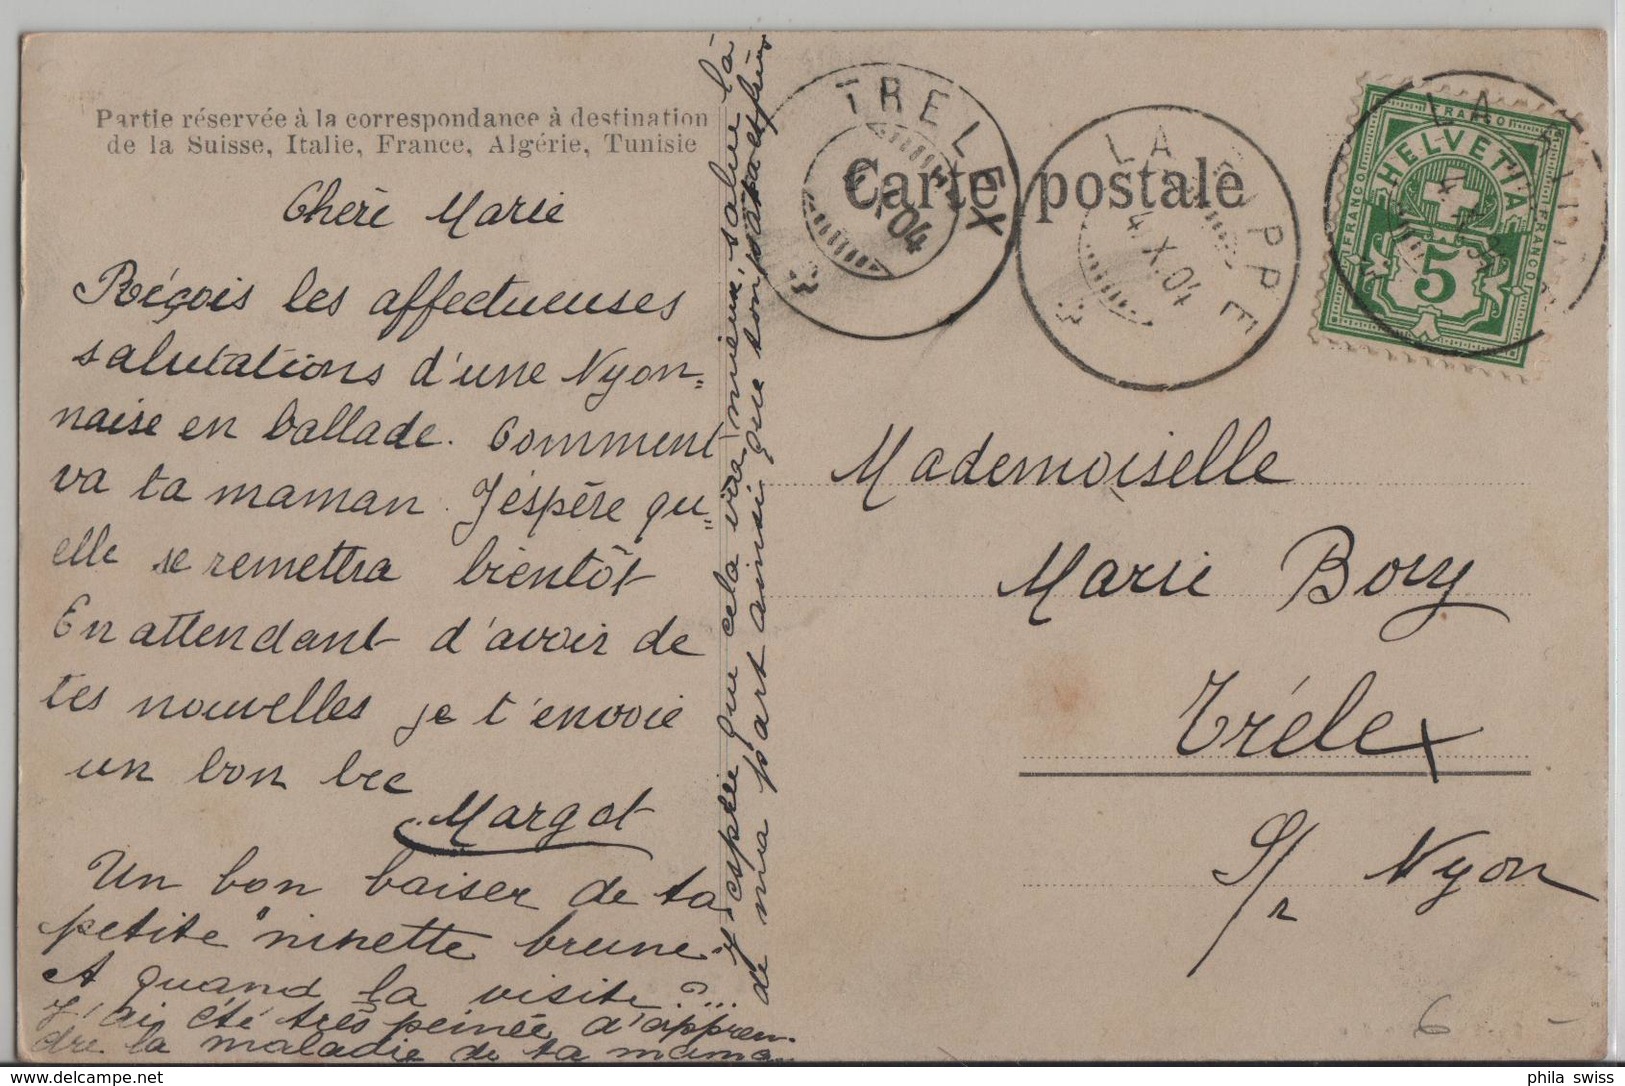 Partie réservée à la correspondance à destination
de la Suisse, Italie, France, Algérie, Tunisie
Chère Marie
Réçois les affectueuses
salutations d'une Nyon=
naise en ballade. Comment
va ta maman. J'éspère qu'=
elle se remettra bientôt
En attendant d'avoir de
tes nouvelles je t'envoie
un bon bec
Margot
Un bon baiser de ta
petite "ninette brune"
A quand la visite?...
J'ai été très peinée d'appren-
dre la maladie de ta mama.
J'espère que cela va mieux, salue là
de ma part ainsi que ton
Carte postale
TRELEX
X.04
LA CIPPE
4.X.04
LA
FRANCO
HELVETIA
FRANCO
FRANCO
5
Mademoiselle
Marie Bory
Trélex
S/r Nyon
6 -
phila swiss